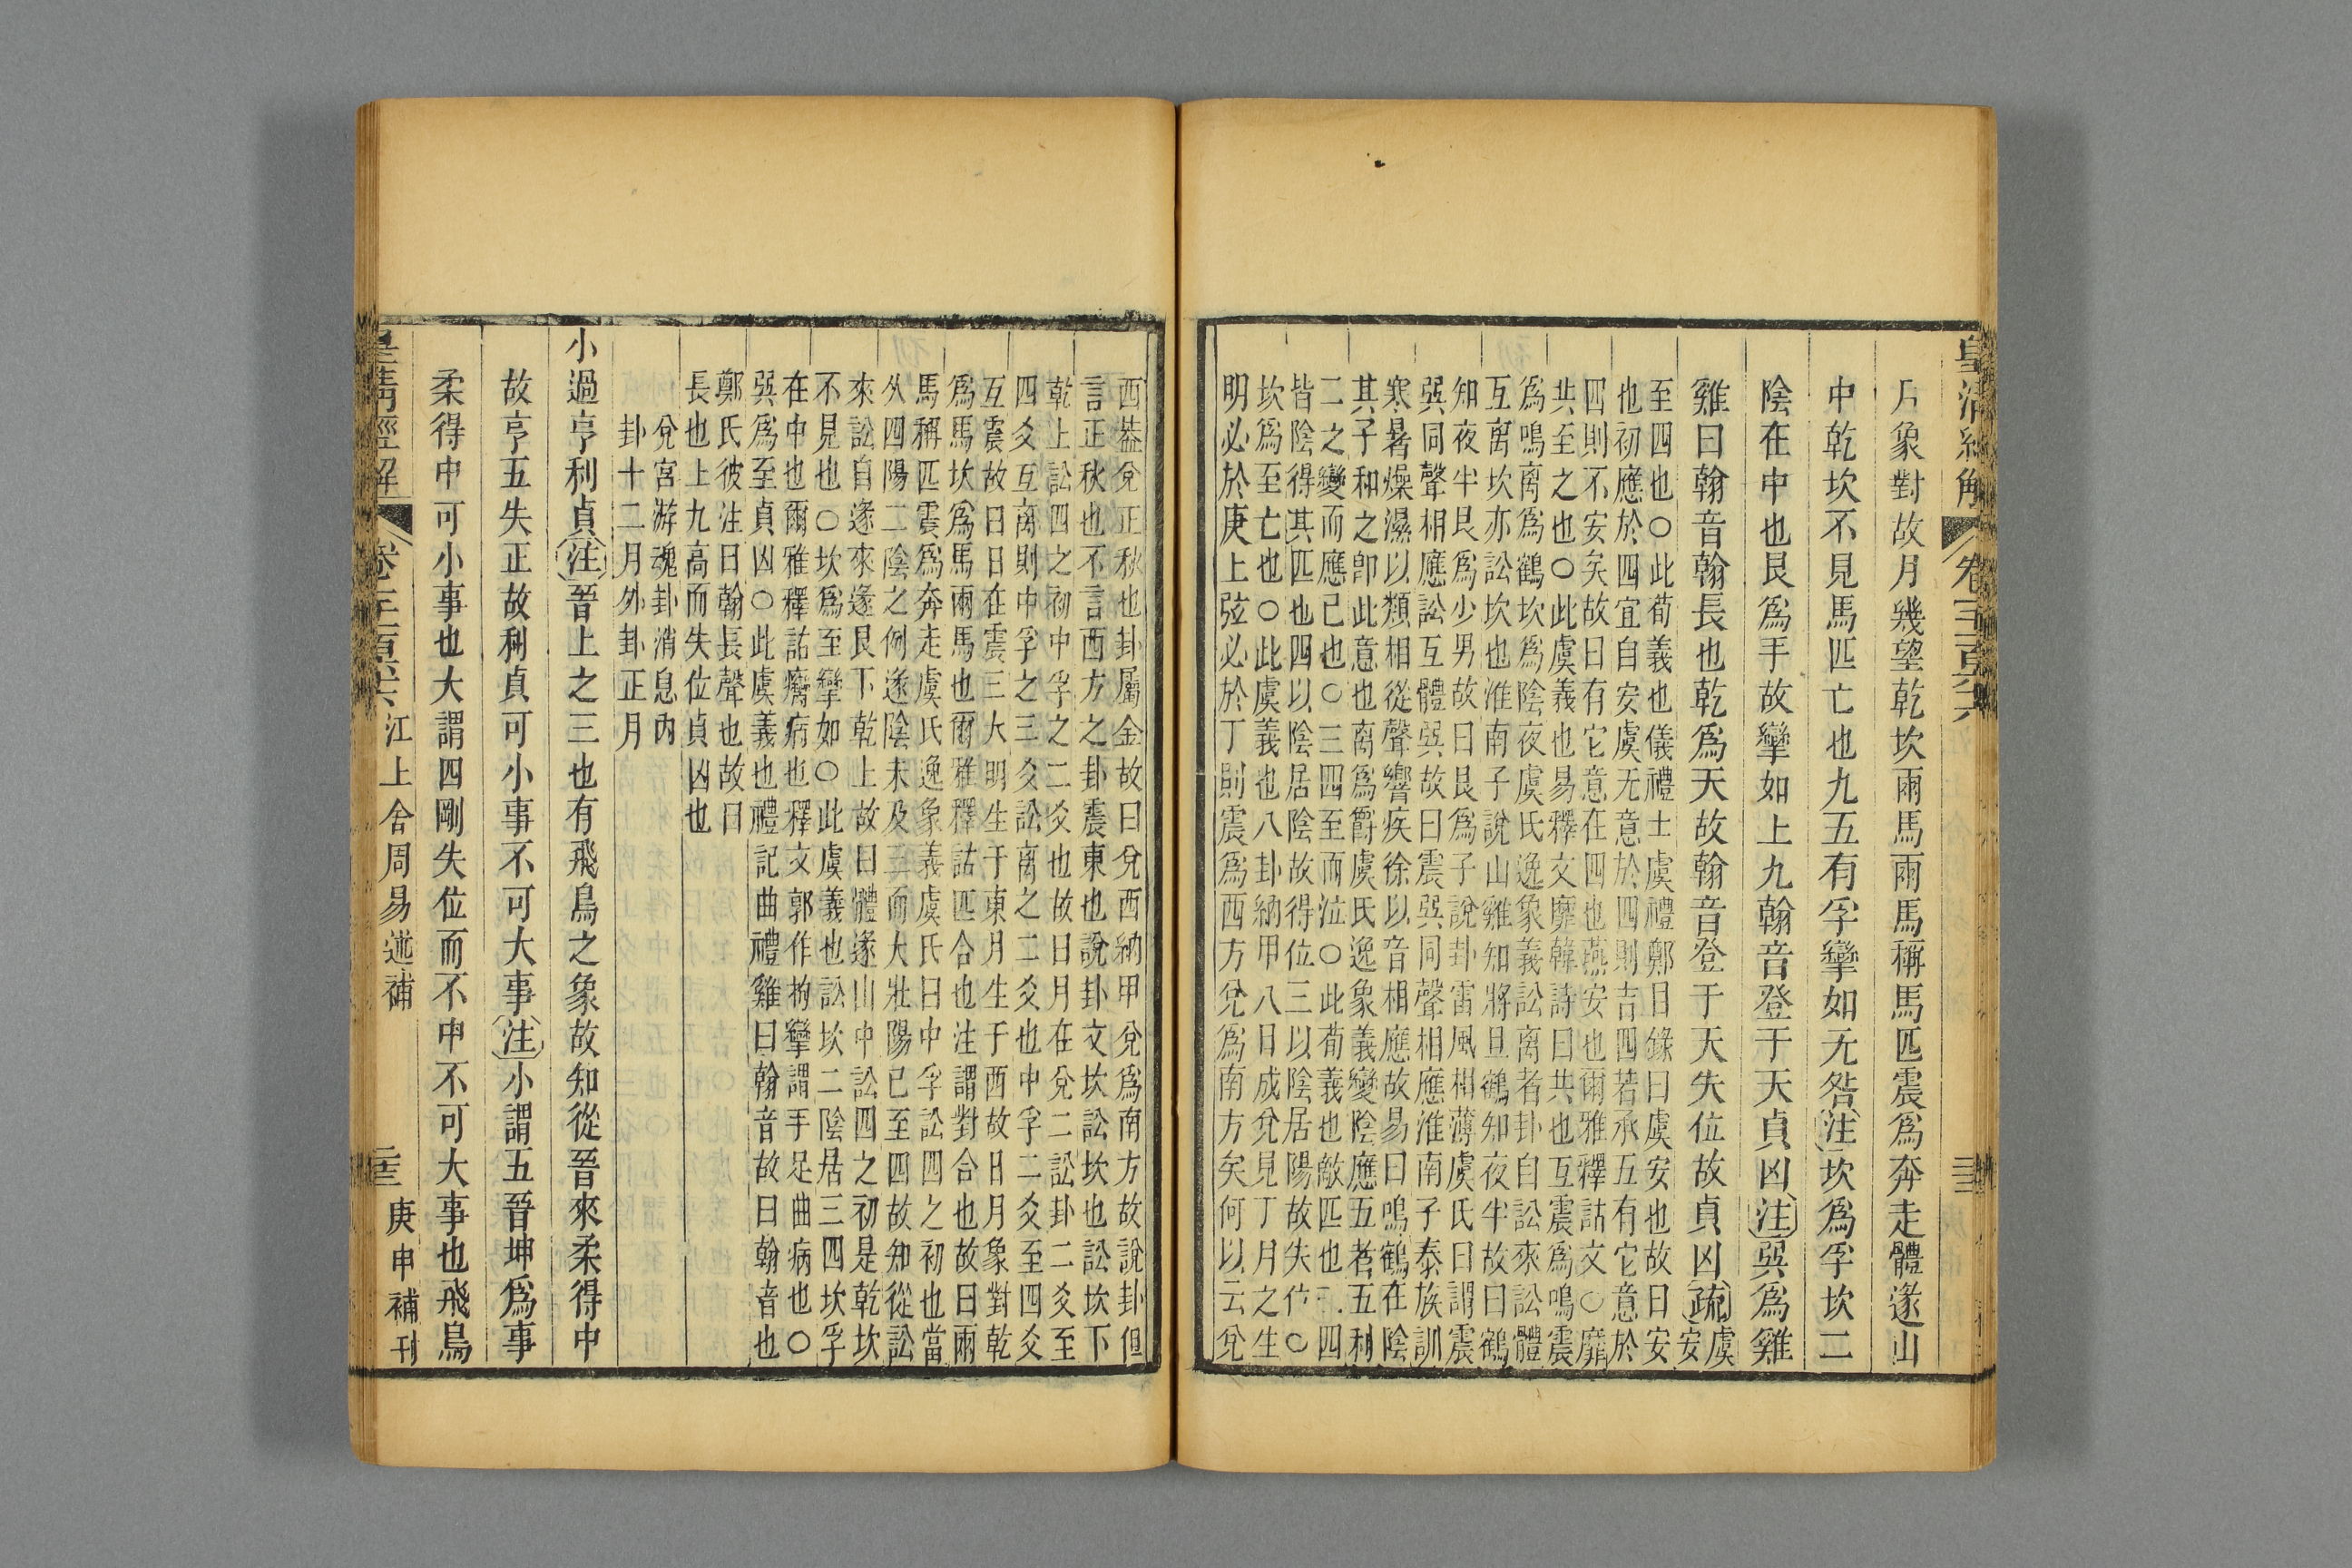 皇清經解 卷三百六
月象對故月幾望乾坎兩馬兩馬稱馬匹震爲奔走體遂山
中乾坎不見馬匹亡也九五有孚攣如无咎注坎爲孚坎二
陰在中也艮爲手故攣如上九翰音登于天貞凶注巽爲雞
雞曰翰音翰長也乾爲天故翰音登于天失位故貞凶疏虞
安
至四也〇此荀義也儀禮士虞禮鄭目錄曰虞安也故曰安
也初應於四宜自安虞无意於四則吉四若承五有它意於
四則不安矣故曰有它意在四也燕安也爾雅釋詁文〇靡
共至之也〇此虞義也易釋文靡韓詩曰共也互震爲鳴震
爲鳴离爲鶴坎爲陰夜虞氏逸象義訟离者卦自訟來訟體
互离坎亦訟坎也淮南子說山雞知將旦鶴知夜半故曰鶴
知夜半艮爲少男故曰艮爲子說卦雷風相薄虞氏曰謂震
巽同聲相應訟互體巽故曰震巽同聲相應淮南子泰族訓
寒暑燥濕以類相從聲響疾徐以音相應故易曰鳴鶴在陰
其子和之卽此意也离爲爵虞氏逸象義變陰應五者五利
二之變而應已也〇三四至而泣〇此荀義也敵匹也三四
皆陰得其匹也四以陰居陰故得位三以陰居陽故失位〇
坎爲至亡也〇此虞義也八卦納甲八日成兌見丁月之生
明必於庚上弦必於丁則震爲西方兌爲南方矣何以云兌
西葢兌正秋也卦屬金故曰兌西納甲兌爲南方故說卦但
言正秋也不言西方之卦震東也說卦文坎訟坎也訟坎下
乾上訟四之初中孚之二爻也故日月在兌二訟卦二爻至
四爻互离則中孚之三爻訟离之二爻也中孚二爻至四爻
互震故曰日在震三大明生于東月生于西故日月象對乾
爲馬坎爲馬兩馬也爾雅釋詁匹合也注謂對合也故曰兩
馬稱匹震爲奔走虞氏逸象義虞氏曰中孚訟四之初也當
从四陽二陰之例遂陰未及三而大壯陽已至四故知從訟
來訟自遂來遂艮下乾上故曰體遂山中訟四之初是乾坎
不見也〇坎爲至攣如〇此虞義也訟坎二陰居三四坎孚
在中也爾雅釋詁癵病也釋文郭作拘攣謂手足曲病也〇
巽爲至貞凶〇此虞義也禮記曲禮雞曰翰音故曰翰音也
鄭氏彼注曰翰長聲也故曰
長也上九高而失位貞凶也
兌宮游魂卦消息內
卦十二月外卦正月
小過亨利貞注晉上之三也有飛鳥之象故知從晉來柔得中
故亨五失正故利貞可小事不可大事注小謂五晉坤爲事
柔得中可小事也大謂四剛失位而不中不可大事也飛鳥
皇清經解 卷三百六 江上舍周易述補 庚申補刊